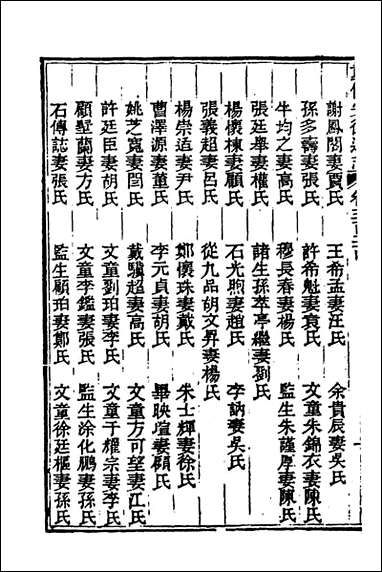 謝鳳閣妻賈氏 王希孟妻汪氏 余貴辰妻吳氏
孫多壽妻張氏 許希魁妻袁氏 文童朱錦衣妻陳氏
牛均之妻高氏 穆長春妻楊氏 監生朱謹厚妻陳氏
張廷舉妻權氏 諸生孫萃亭繼妻劉氏
楊懷棟妻顧氏 石光煦妻趙氏 李訥妻吳氏
張義超妻呂氏 從九品胡文昇妻楊氏
楊崇适妻尹氏 鄭懷珠妻戴氏 朱士輝妻徐氏
曹澤源妻董氏 李元貞妻胡氏 畢映瑄妻顧氏
姚芝寬妻閆氏 戴驥超妻高氏 文童方可望妻江氏
許廷臣妻胡氏 文童劉珀妻李氏 文童于耀宗妻李氏
顧墅蘭妻方氏 文童李鑑妻張氏 監生涂化鵬妻孫氏
石傳誌妻張氏 監生顧珀妻鄭氏 文童徐廷樞妻孫氏